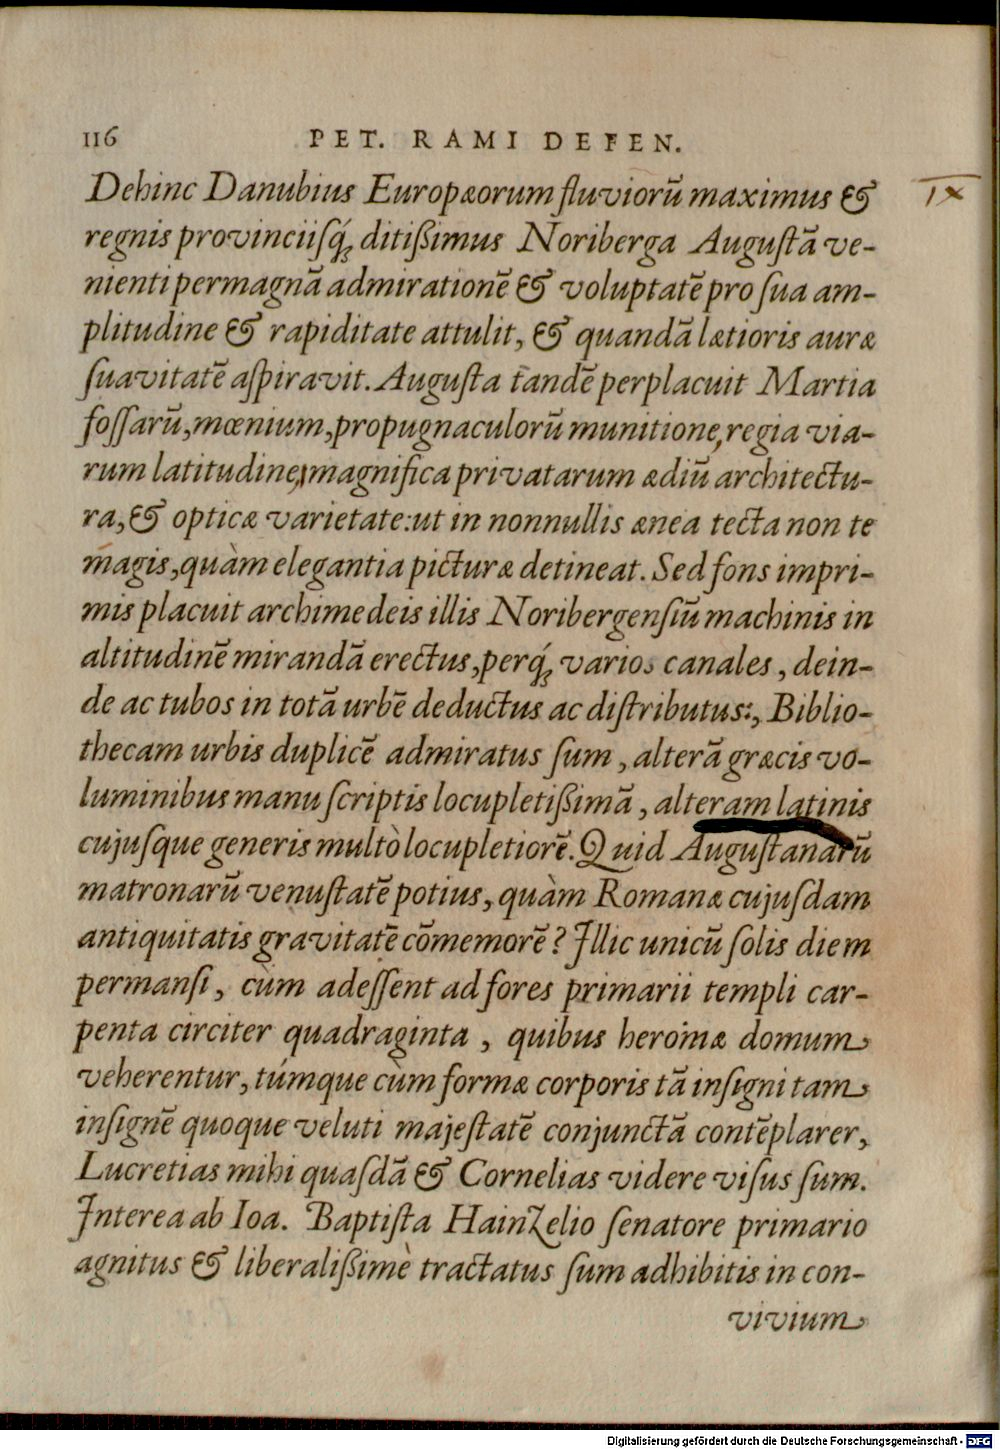 116 PET. RAMI DEFEN.
Dehinc Danubius Europæorum fluviorũ maximus &
IX
regnis provinciisq́; ditißimus Noriberga Augustã ve-
nienti permagnã admirationẽ & voluptatẽ pro sua am-
plitudine & rapiditate attulit, & quandã lætioris auræ
suavitatẽ aspiravit. Augusta tandẽ perplacuit Martia
fossarũ, mœnium, propugnaculorũ munitione, regia via-
rum latitudine, magnifica privatarum ædiũ architectu-
ra, & opticæ varietate: ut in nonnullis ænea tecta non te
magis, quàm elegantia picturæ detineat. Sed fons impri-
mis placuit archimedeis illis Noribergensiũ machinis in
altitudinẽ mirandã erectus, perq́; varios canales, dein-
de ac tubos in totã urbẽ deductus ac distributus:, Biblio-
thecam urbis duplicẽ admiratus sum, alterã græcis vo-
luminibus manu scriptis locupletißimã, alteram latinis
cujusque generis multò locupletiorẽ. Quid Augustanarũ
matronarũ venustatẽ potius, quàm Romanæ cujusdam
antiquitatis gravitatẽ cõmemorẽ? Illic unicũ solis diem
permansi, cùm adessent ad fores primarii templi car-
penta circiter quadraginta, quibus heroinæ domum
veherentur, túmque cùm formæ corporis tã insigni tam
insignẽ quoque veluti majestatẽ conjunctã contẽplarer,
Lucretias mihi quasdã & Cornelias videre visus sum.
Interea ab Ioa. Baptista Hainzelio senatore primario
agnitus & liberalißimè tractatus sum adhibitis in con-
vivium
Digitalisierung gefördert durch die Deutsche Forschungsgemeinschaft - DFG